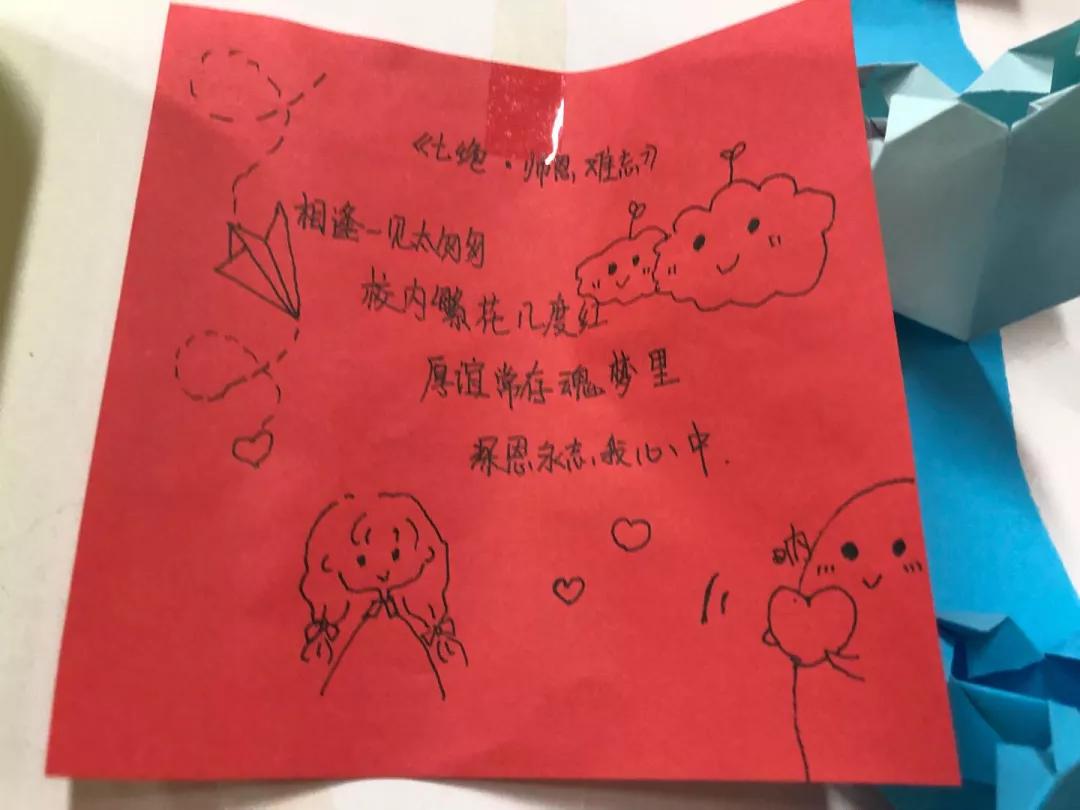 《七绝·师恩难忘》
相逢一见太匆匆
校内繁花几度红
厚谊常存魂梦里
深恩永志我心中.
呐